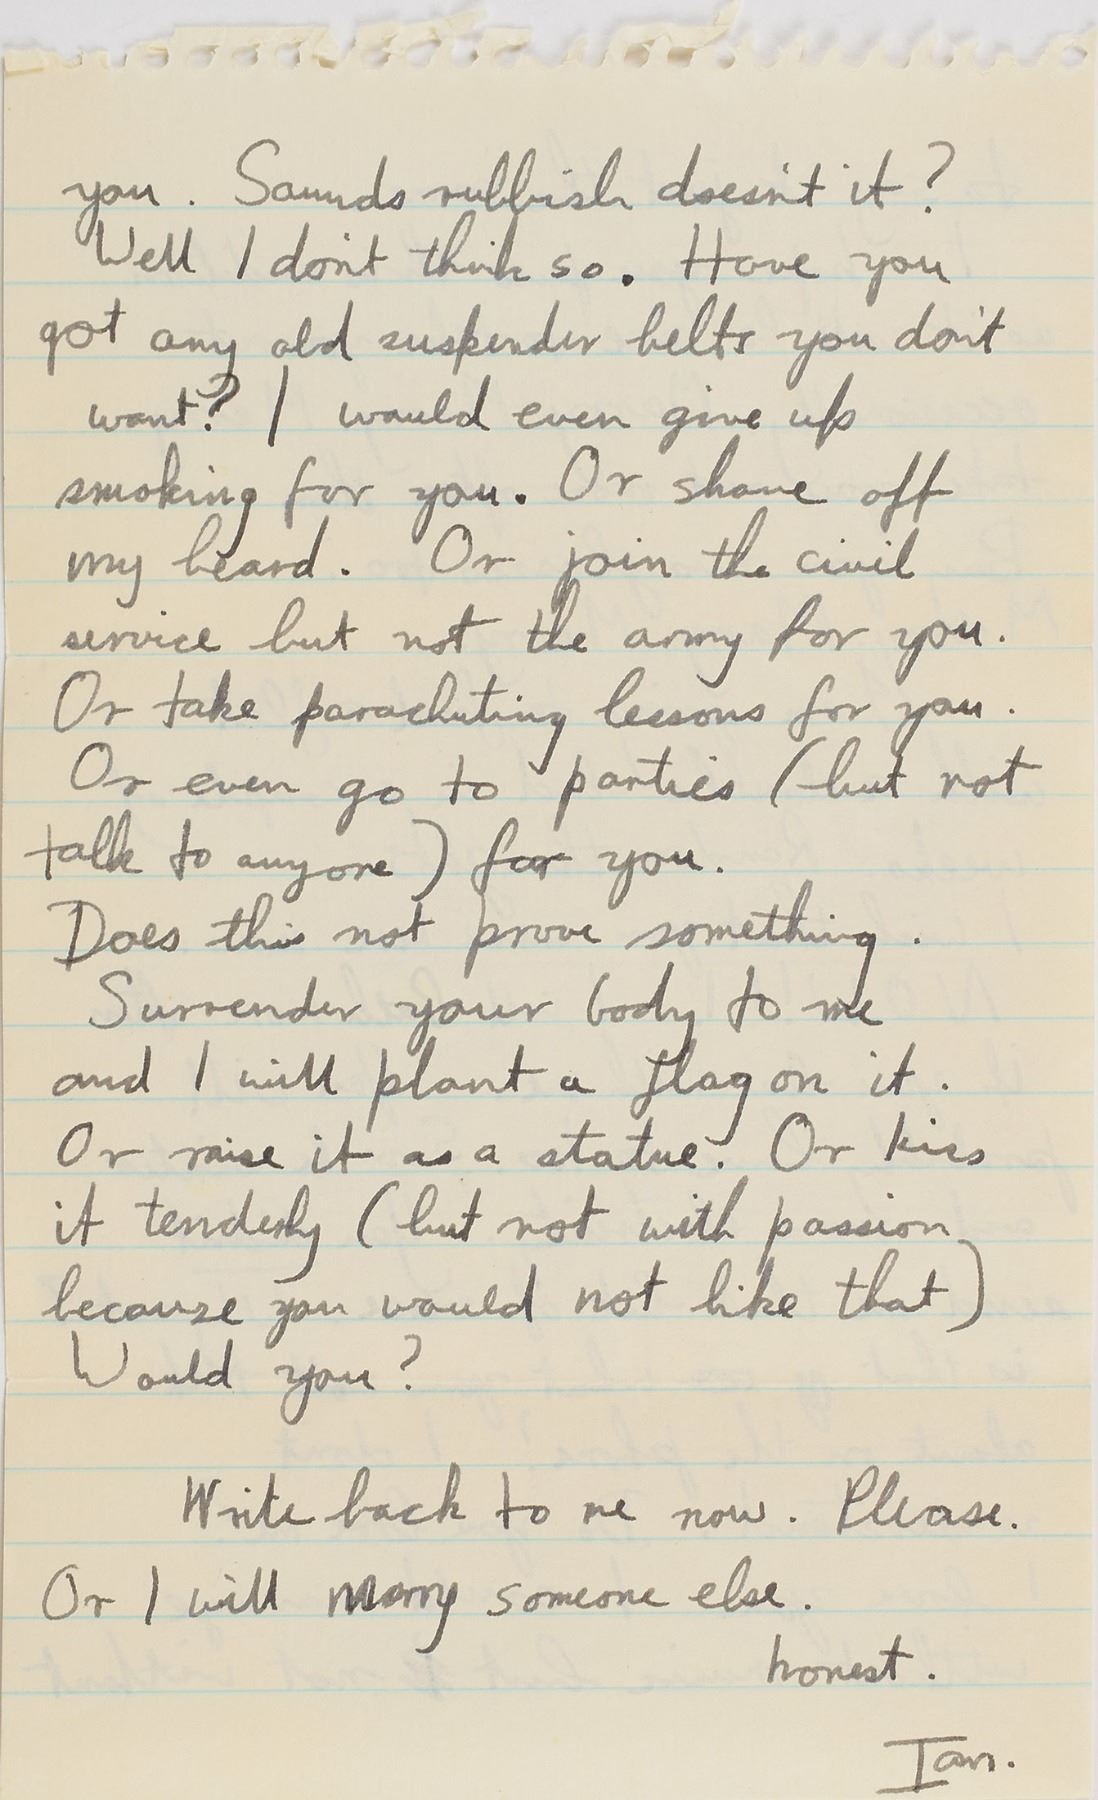 you. Sounds rubbish doesn't it?
Well I don't think so. Have you
got any old suspender belts you don't
want? I would even give up
smoking for you. Or shave off
my beard. Or join the civil
service but not the army for you.
Or take parachuting lessons for you.
Or even go to parties (but not
talk to anyone) for you.
Does this not prove something.
Surrender your body to me
and I will plant a flag on it.
Or raise it as a statue. Or kiss
it tenderly (but not with passion
because you would not like that)
Would you?
Write back to me now. Please.
Or I will marry someone else.
honest.
Ian.